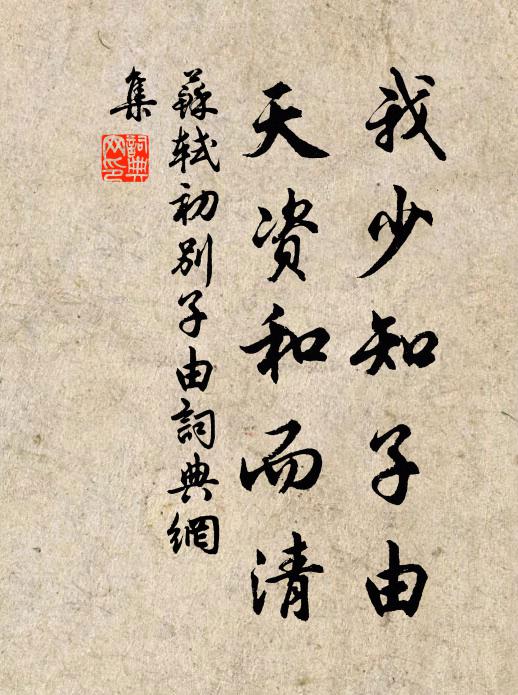 我少知子由
天资和而清
蘇軾初別子由詞典網
集
詞典
网印